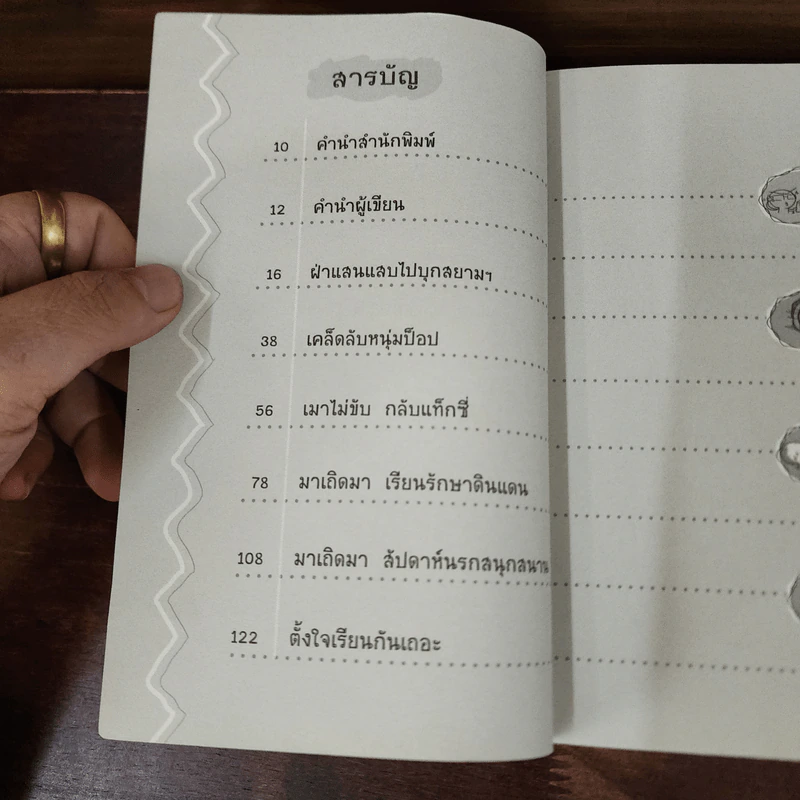 สารบัญ
10 คำนำสำนักพิมพ์
12 คำนำผู้เขียน
16 ฝ่าแสนแสบไปบุกสยามฯ
38 เคล็ดลับหนุ่มป็อป
56 เมาไม่ขับ กลับแท็กซี่
78 มาเถิดมา เรียนรักษาดินแดน
108 มาเถิดมา สัปดาห์นรกสนุกสนาน
122 ตั้งใจเรียนกันเถอะ